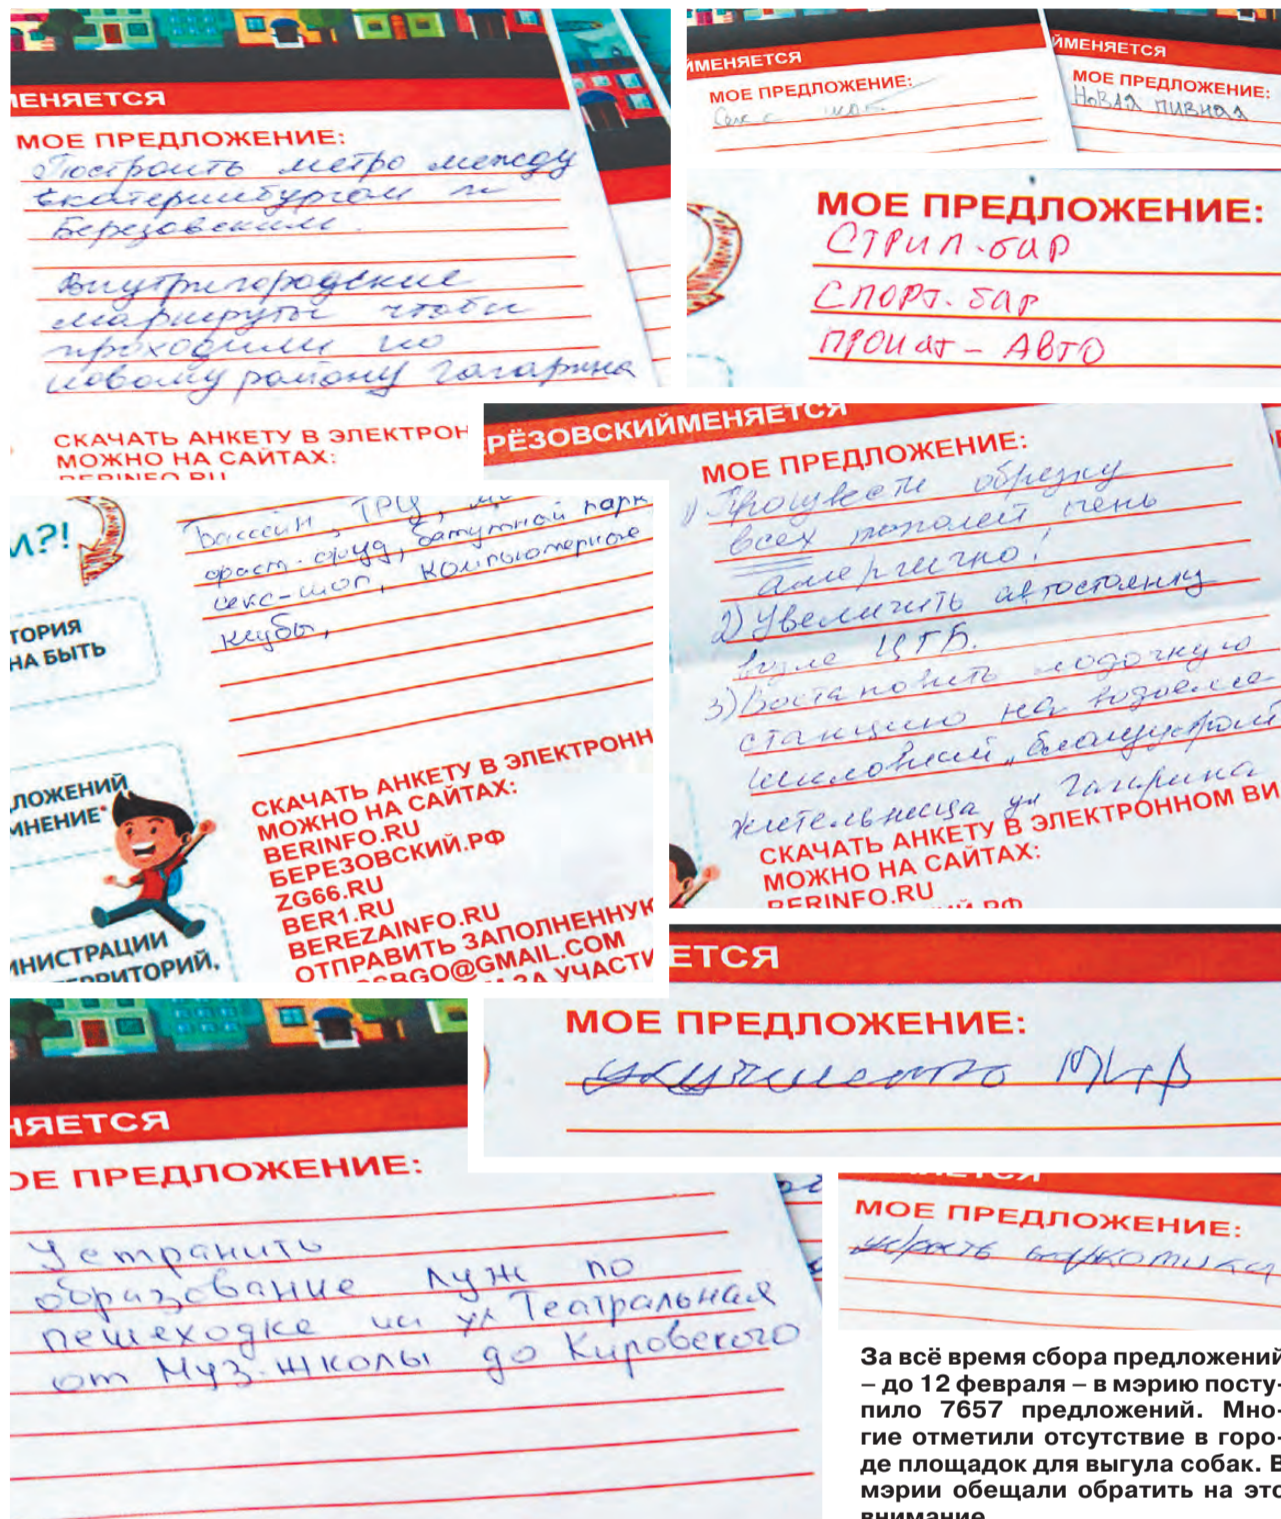 МЕНЯЕТСЯ
МОЕ ПРЕДЛОЖЕНИЕ:
Построить метро между
Екатеринбургом и
Березовским.
Внутригородские
маршруты чтобы
проходили по
новому району Гагарина
СКАЧАТЬ АНКЕТУ В ЭЛЕКТРОН
МОЖНО НА САЙТАХ:
BERINFO.RU
ЙМЕНЯЕТСЯ
МОЕ ПРЕДЛОЖЕНИЕ:
Секс шоп
ЙМЕНЯЕТСЯ
МОЕ ПРЕДЛОЖЕНИЕ:
Новая пивная
МОЕ ПРЕДЛОЖЕНИЕ:
СТРИП-бар
СПОРТ-бар
ПРОкат - АВТО
РЁЗОВСКИЙМЕНЯЕТСЯ
МОЕ ПРЕДЛОЖЕНИЕ:
1) Произвести обрезку
всех тополей очень
аллергично!
2) Увеличить автостоянку
возле ЦГБ.
3) Востановить лодочную
станцию на водоеме
Шиловский
жительница ул Гагарина
СКАЧАТЬ АНКЕТУ В ЭЛЕКТРОННОМ ВИ
МОЖНО НА САЙТАХ:
BERINFO.RU
М?!
Бассейн, ТРЦ,
фаст-фуд, батутный парк
секс-шоп, компьютерные
клубы,
ТОРИЯ
НА БЫТЬ
ЛОЖЕНИЙ
МНЕНИЕ*
ИНИСТРАЦИИ
ТЕРРИТОРИЙ,
СКАЧАТЬ АНКЕТУ В ЭЛЕКТРОНН
МОЖНО НА САЙТАХ:
BERINFO.RU
БЕРЕЗОВСКИЙ.РФ
ZG66.RU
BER1.RU
BEREZAINFO.RU
ОТПРАВИТЬ ЗАПОЛНЕННУЮ
SBGO@GMAIL.COM
ЗА УЧАСТИ
ЕТСЯ
МОЕ ПРЕДЛОЖЕНИЕ:
НЯЕТСЯ
ОЕ ПРЕДЛОЖЕНИЕ:
Устранить
образование луж по
пешеходке на ул Театральная
от Муз. школы до Кировского
МОЕ ПРЕДЛОЖЕНИЕ:
убрать наркотики
За всё время сбора предложений
– до 12 февраля – в мэрию посту-
пило 7657 предложений. Мно-
гие отметили отсутствие в горо-
де площадок для выгула собак. В
мэрии обещали обратить на это
внимание